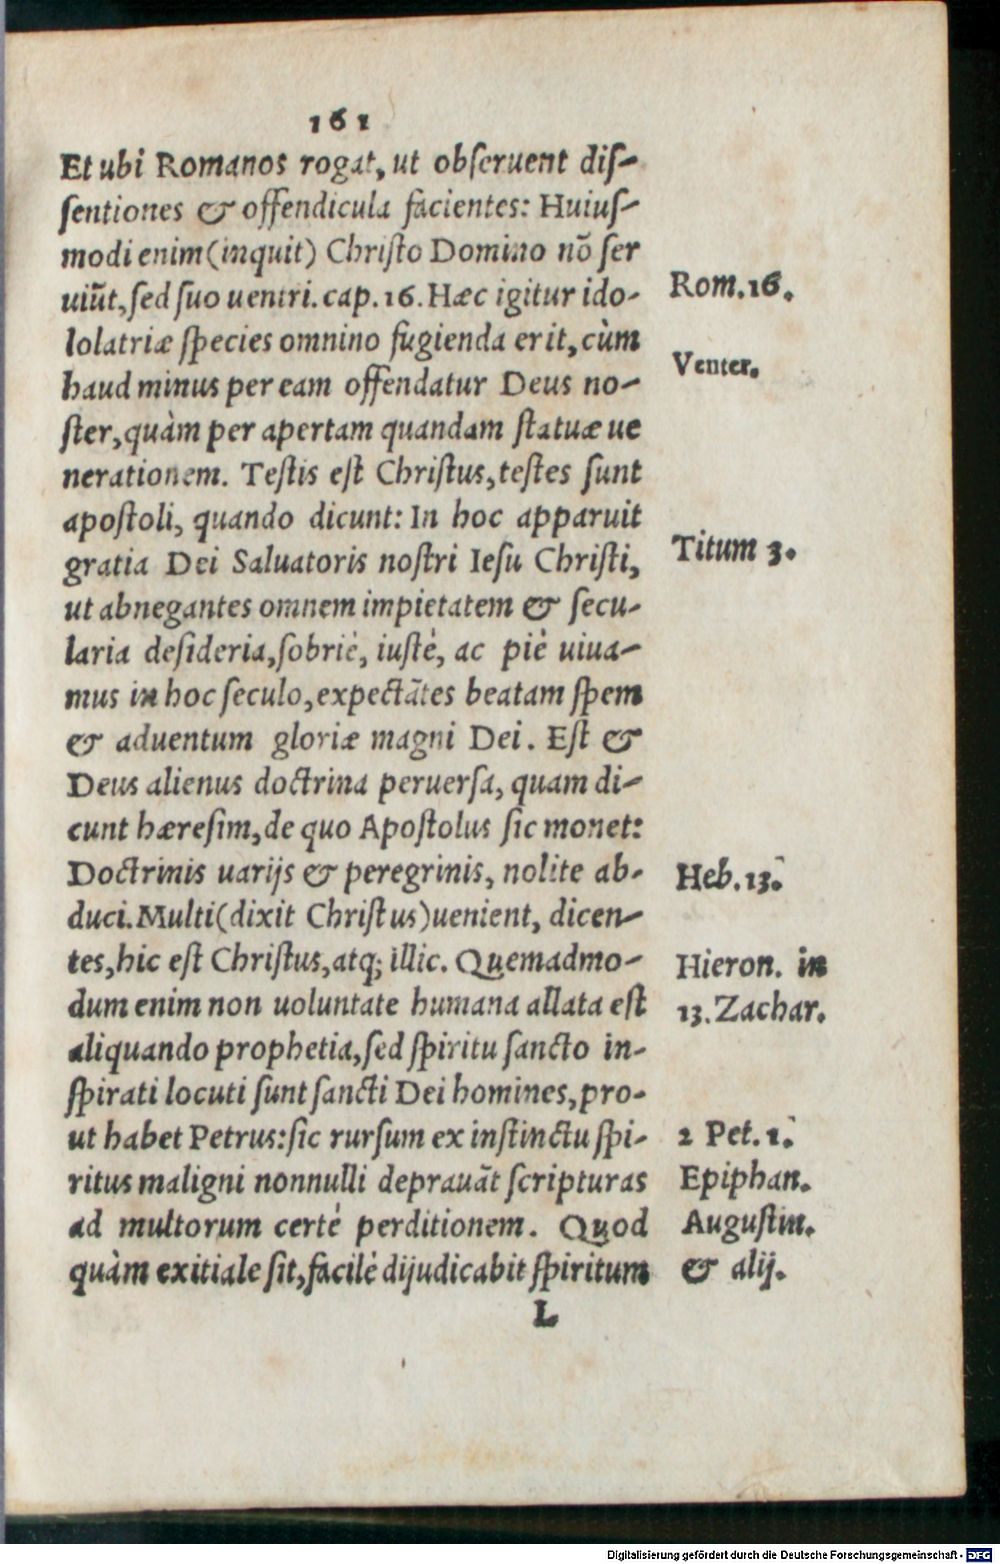 161
Et ubi Romanos rogat, ut obſeruent diſ-
ſentiones & offendicula facientes: Huiuſ-
modi enim (inquit) Chriſto Domino nõ ſer
uiũt, ſed ſuo uentri. cap. 16. Hæc igitur ido-
Rom. 16.
lolatriæ ſpecies omnino fugienda erit, cùm
Venter.
haud minus per eam offendatur Deus no-
ſter, quàm per apertam quandam ſtatuæ ue
nerationem. Teſtis eſt Chriſtus, teſtes ſunt
apoſtoli, quando dicunt: In hoc apparuit
gratia Dei Saluatoris noſtri Ieſu Chriſti,
Titum 3.
ut abnegantes omnem impietatem & ſecu-
laria deſideria, ſobriè, iuſtè, ac piè uiua-
mus in hoc ſeculo, expectãtes beatam ſpem
& aduentum gloriæ magni Dei. Eſt &
Deus alienus doctrina peruerſa, quam di-
cunt hæreſim, de quo Apoſtolus ſic monet:
Doctrinis uarijs & peregrinis, nolite ab-
Heb. 13.
duci. Multi (dixit Chriſtus) uenient, dicen-
tes, hic eſt Chriſtus, atq; illic. Quemadmo-
Hieron. in
dum enim non uoluntate humana allata eſt
13. Zachar.
aliquando prophetia, ſed ſpiritu ſancto in-
ſpirati locuti ſunt ſancti Dei homines, pro-
ut habet Petrus: ſic rurſum ex inſtinctu ſpi-
2 Pet. 1.
ritus maligni nonnulli deprauãt ſcripturas
Epiphan.
ad multorum certè perditionem. Quod
Auguſtin.
quàm exitiale ſit, facilè dijudicabit ſpiritum
& alij.
L
Digitalisierung gefördert durch die Deutsche Forschungsgemeinschaft - DFG